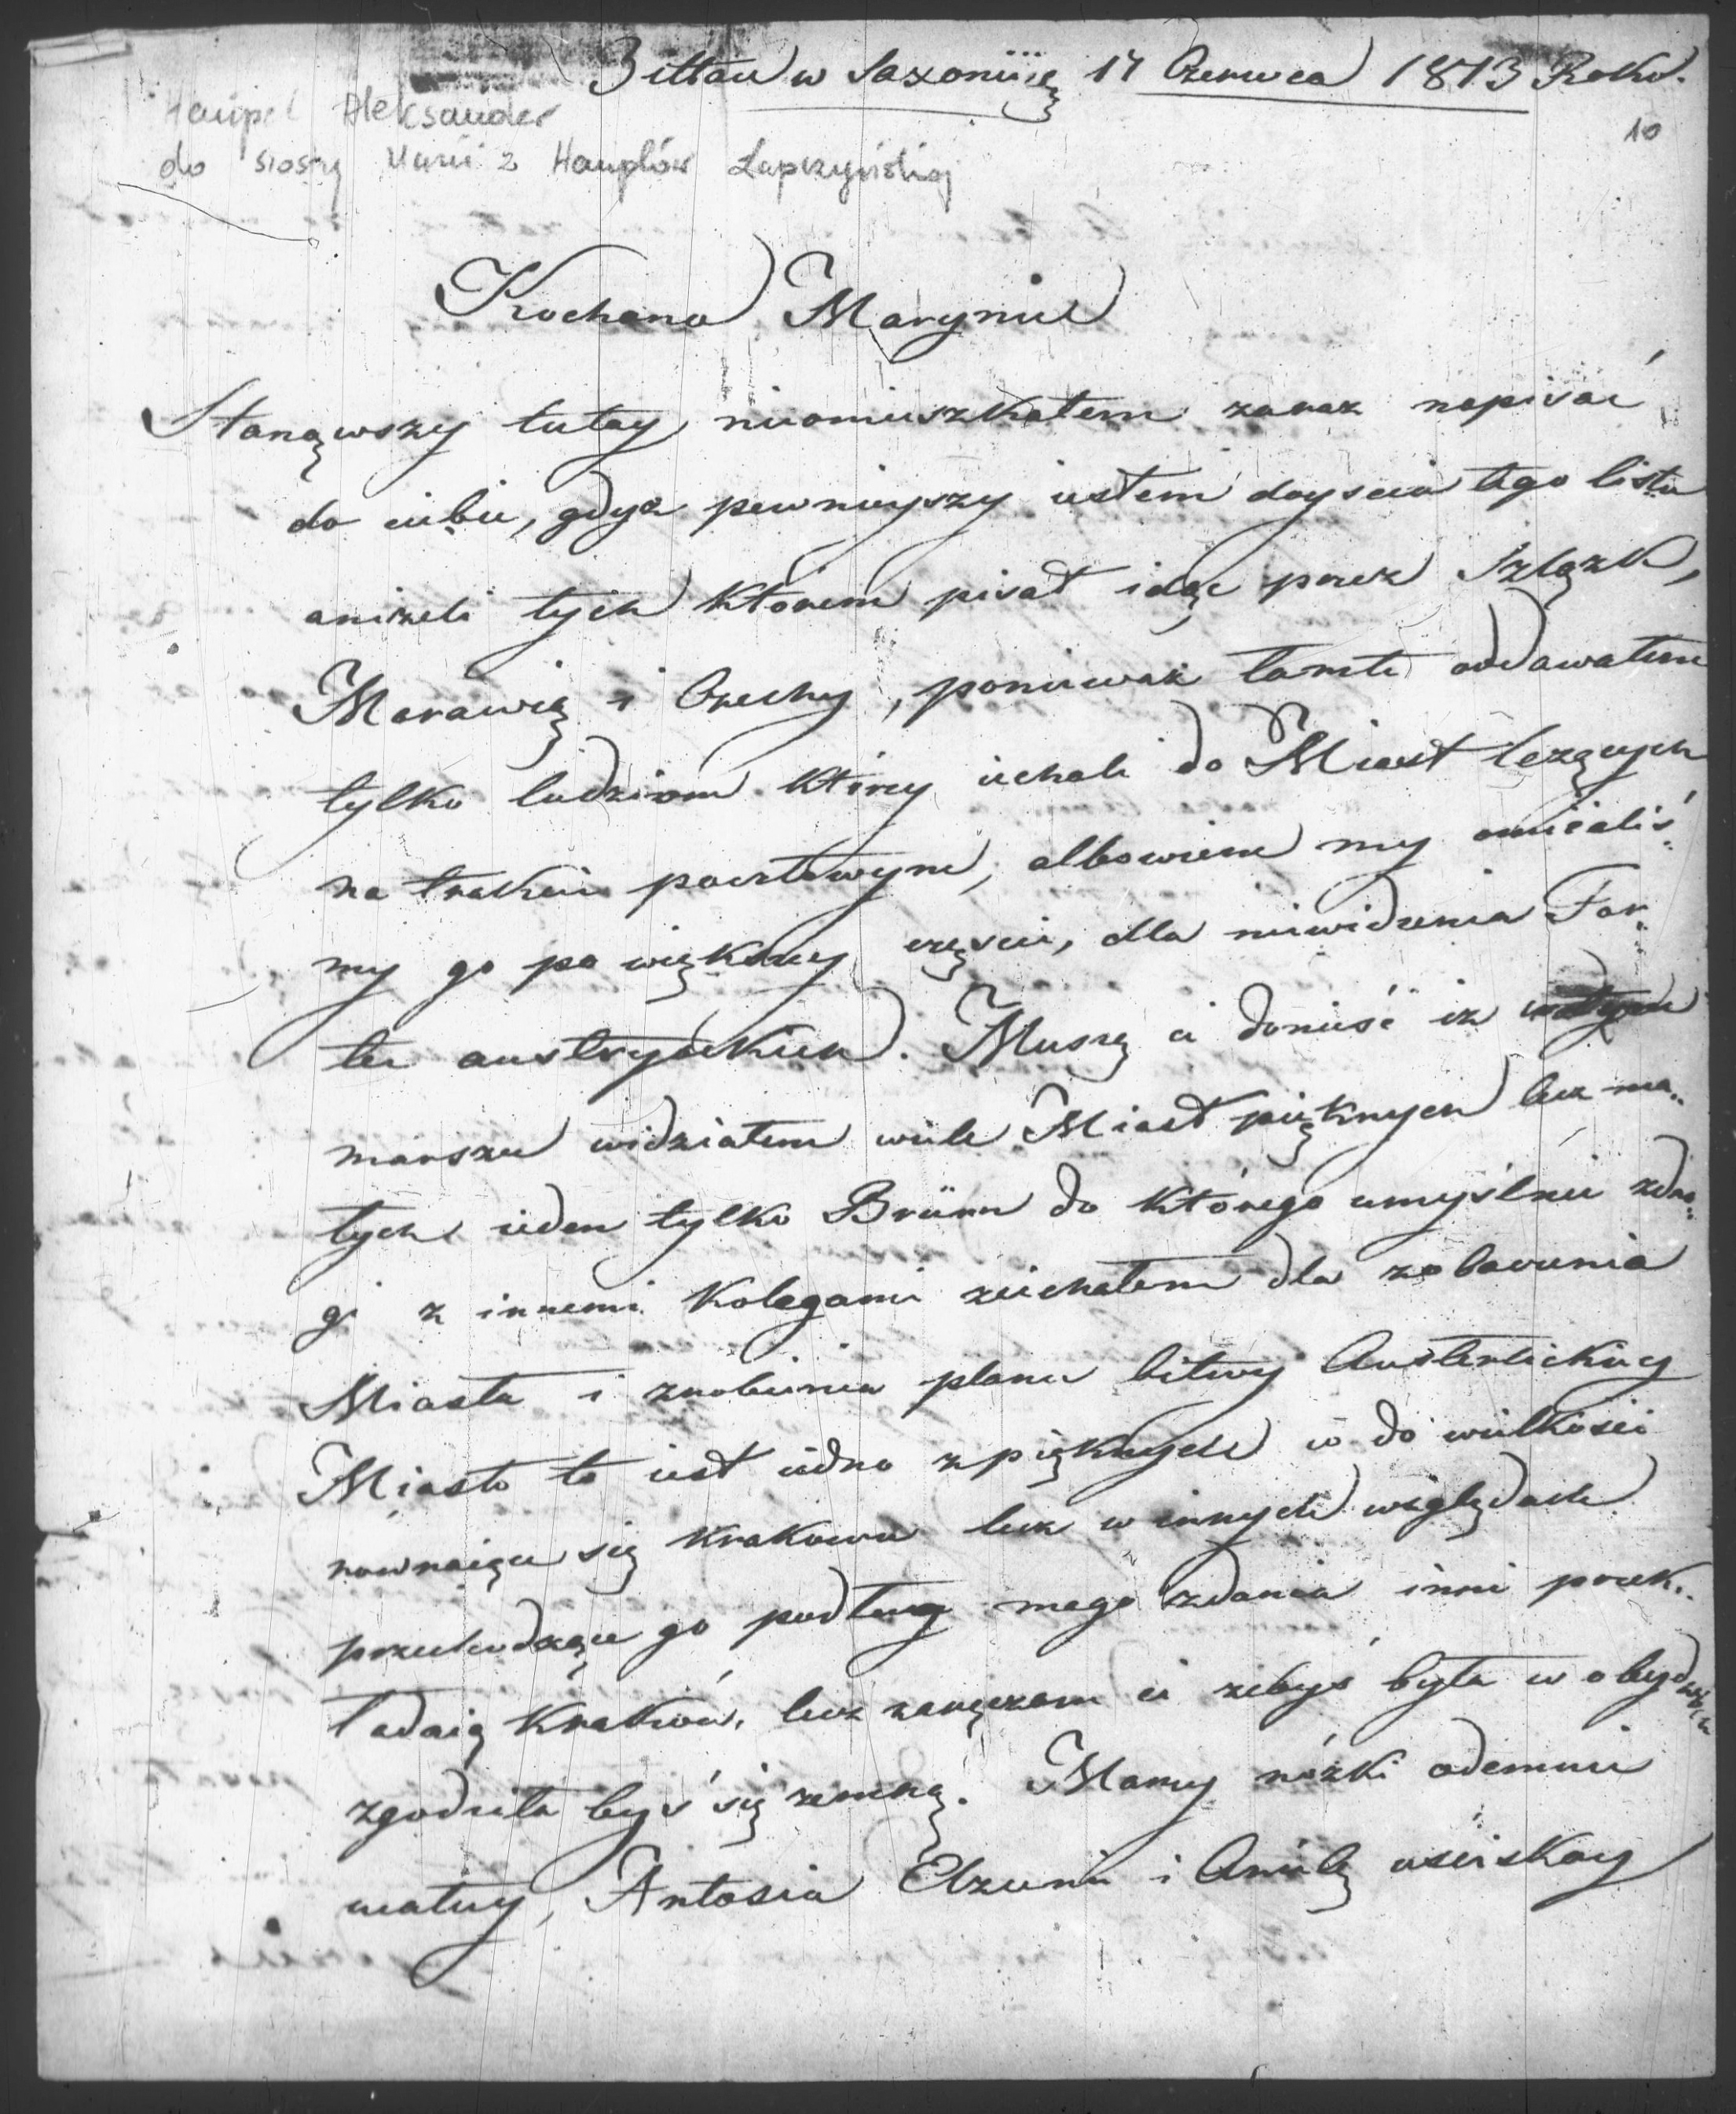 Zittau w Saxoniię 17 Czerwca 1813 Roku.
10
Haupel Aleksander
do siostry Marii z Hauplów Łapczyńskiej
Kochana Marynie
Stanąwszy tutay nieomieszkałem zaraz napisać
do ciebie, gdyż pewnieyszy iestem doyscia tego listu
aniżeli tych którem pisał idąc przez Szląsk,
Morawię i Czechy, ponieważ tamte oddawałem
tylko ludziom którzy iechali do Miast leżących
na trakcie pocztowym, albowiem my omiialiś
my go po większey części, dla niewidzenia For
tec austryackich. Muszę ci donieść iż w
marszu widziałem wiele Miast pięknych lecz ma
łych ieden tylko Brünn do którego umyślnie z dro
gi z innemi kolegami ziechałem dla zobaczenia
Miasta i zrobienia planu bitwy Austerlickiey
Miasto to iest iedno z pięknych co do wielkości
rownaiące się Krakowu lecz w innych względach
przechodzące go podług mego zdania inni przek
ładaią Kraków, lecz zaręczam ci żebyś była w obydwóch
zgodziła byś się zemną. Mamy nóżki odemnie
ucałuy, Antosia Elzunie i Anielę uściskay